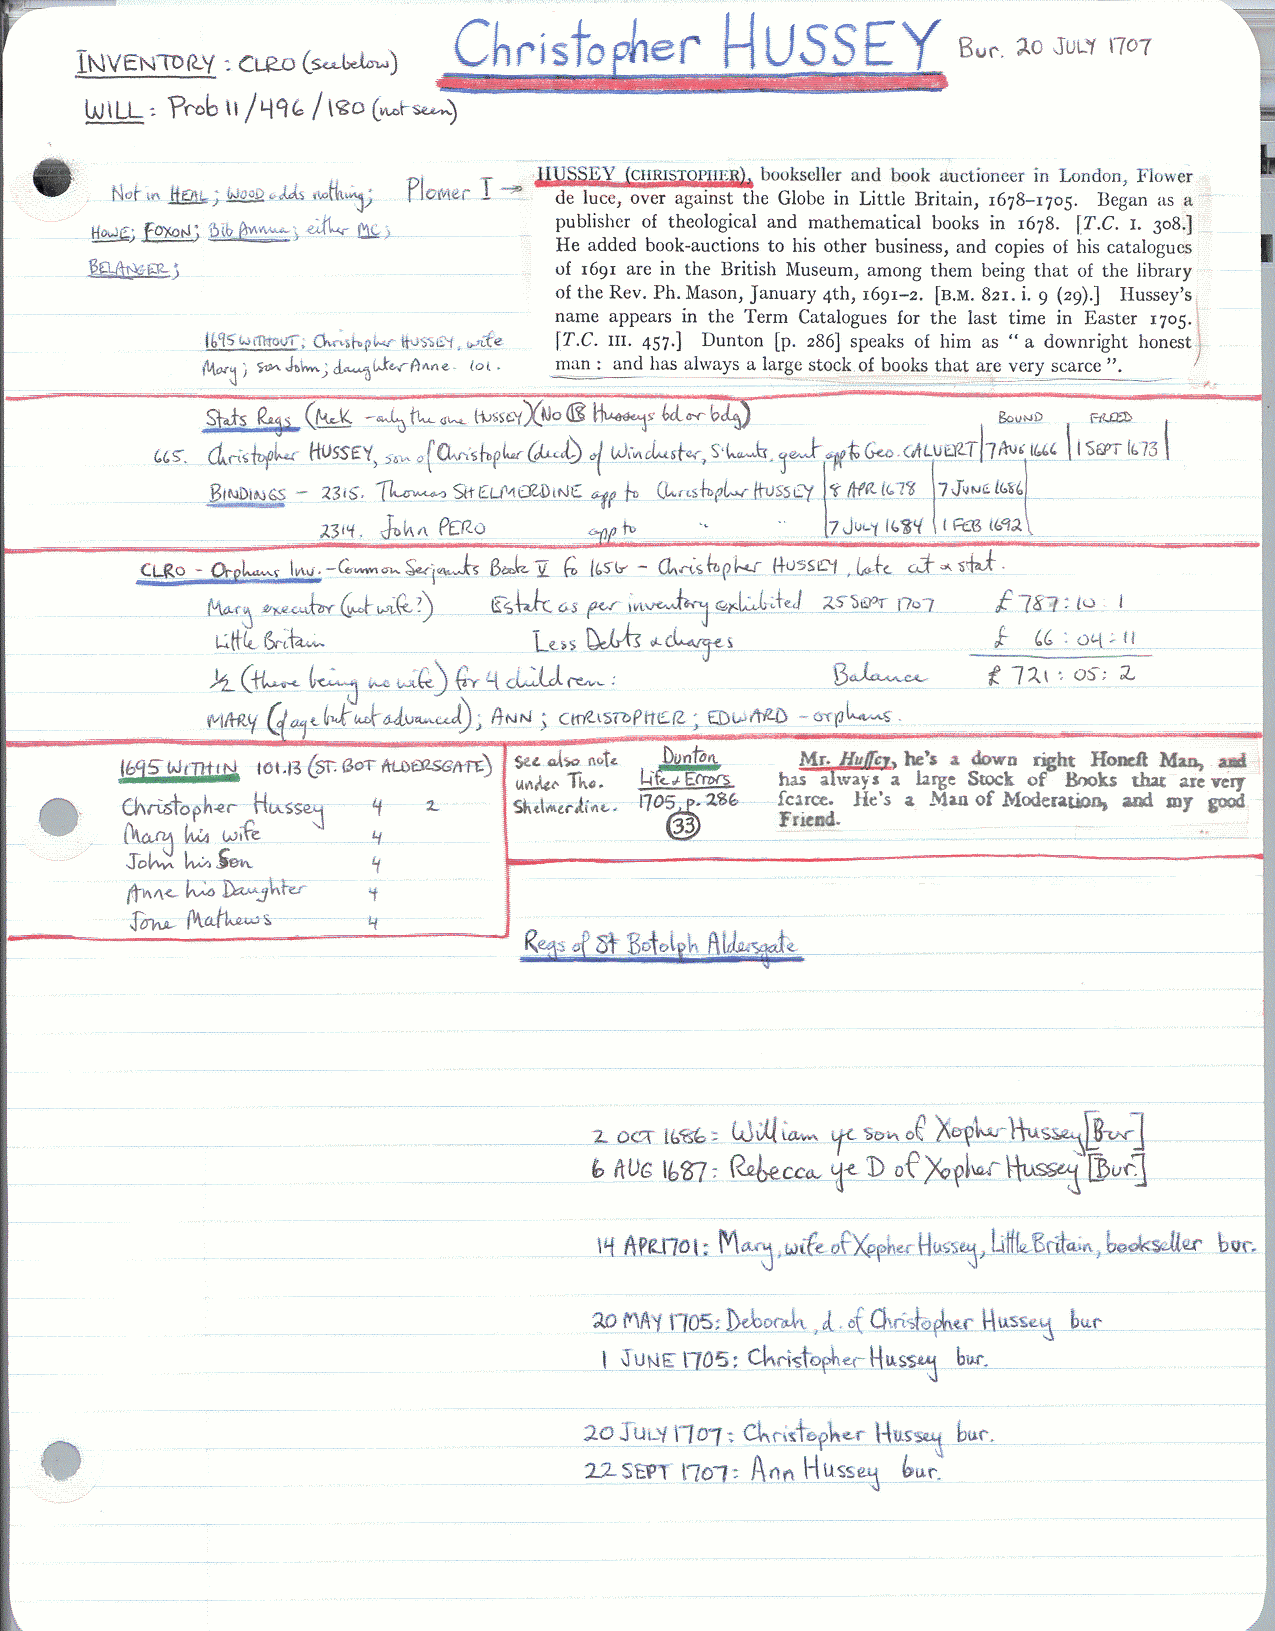 Christopher HUSSEY Bur. 20 JULY 1707
INVENTORY: CLRO (see below)
WILL: Prob 11/496/180 (not seen)
Not in HEAL; WOOD adds nothing; Plomer I →
HOWE; FOXON; Bib Annua; either MC;
BELANGER;
HUSSEY (CHRISTOPHER), bookseller and book auctioneer in London, Flower
de luce, over against the Globe in Little Britain, 1678–1705. Began as a
publisher of theological and mathematical books in 1678. [T.C. I. 308.]
He added book-auctions to his other business, and copies of his catalogues
of 1691 are in the British Museum, among them being that of the library
of the Rev. Ph. Mason, January 4th, 1691–2. [B.M. 821. i. 9 (29).] Hussey's
name appears in the Term Catalogues for the last time in Easter 1705.
[T.C. III. 457.] Dunton [p. 286] speaks of him as " a downright honest
man : and has always a large stock of books that are very scarce ".
1695 WITHOUT; Christopher HUSSEY, wife
Mary; son John; daughter Anne. 101.
Stats Regs (McK - only the one HUSSEY) (No 18 Husseys bd or bdg) BOUND FREED
665. Christopher HUSSEY, son of Christopher (decd) of Winchester, S'hants, gent app to Geo. CALVERT 7 AUG 1666 1 SEPT 1673
BINDINGS - 2315. Thomas SHELMERDINE app to Christopher HUSSEY 8 APR 1678 7 JUNE 1686
2314. John PERO app to " " 7 JULY 1684 1 FEB 1692
CLRO - Orphans Inv. - Common Serjeants Book V fo 165b - Christopher HUSSEY, late cit & stat.
Mary executor (not wife?) Estate as per inventory exhibited 25 SEPT 1707 £ 787:10:1
Little Britain Less Debts & charges £ 66:04:11
½ (there being no wife) for 4 children: Balance £ 721:05:2
MARY (of age but not advanced); ANN; CHRISTOPHER; EDWARD - orphans.
1695 WITHIN 101.13 (ST. BOT ALDERSGATE)
Christopher Hussey 4 2
Mary his wife 4
John his Son 4
Anne his Daughter 4
Jone Mathews 4
see also note
under Tho.
Shelmerdine.
Dunton
Life & Errors
1705, p. 286
33
Mr. Huſſey, he's a down right Honeſt Man, and
has always a large Stock of Books that are very
ſcarce. He's a Man of Moderation, and my good
Friend.
Regs of St Botolph Aldersgate
2 OCT 1686: William ye son of Xopher Hussey [Bur]
6 AUG 1687: Rebecca ye D of Xopher Hussey [Bur.]
14 APR 1701: Mary, wife of Xopher Hussey, Little Britain, bookseller bur.
20 MAY 1705: Deborah, d. of Christopher Hussey bur
1 JUNE 1705: Christopher Hussey bur.
20 JULY 1707: Christopher Hussey bur.
22 SEPT 1707: Ann Hussey bur.